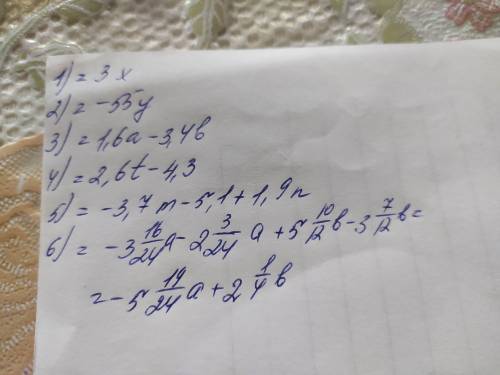 1) = 3x
2) = -55y
3) = 1,6a - 3,4b
4) = 2,6t - 4,3
5) = -3,7m - 5,1 + 1,9n
6) = -3 16/24 a - 2 3/24 a + 5 10/12 b - 3 7/12 b =
= -5 19/24 a + 2 1/4 b